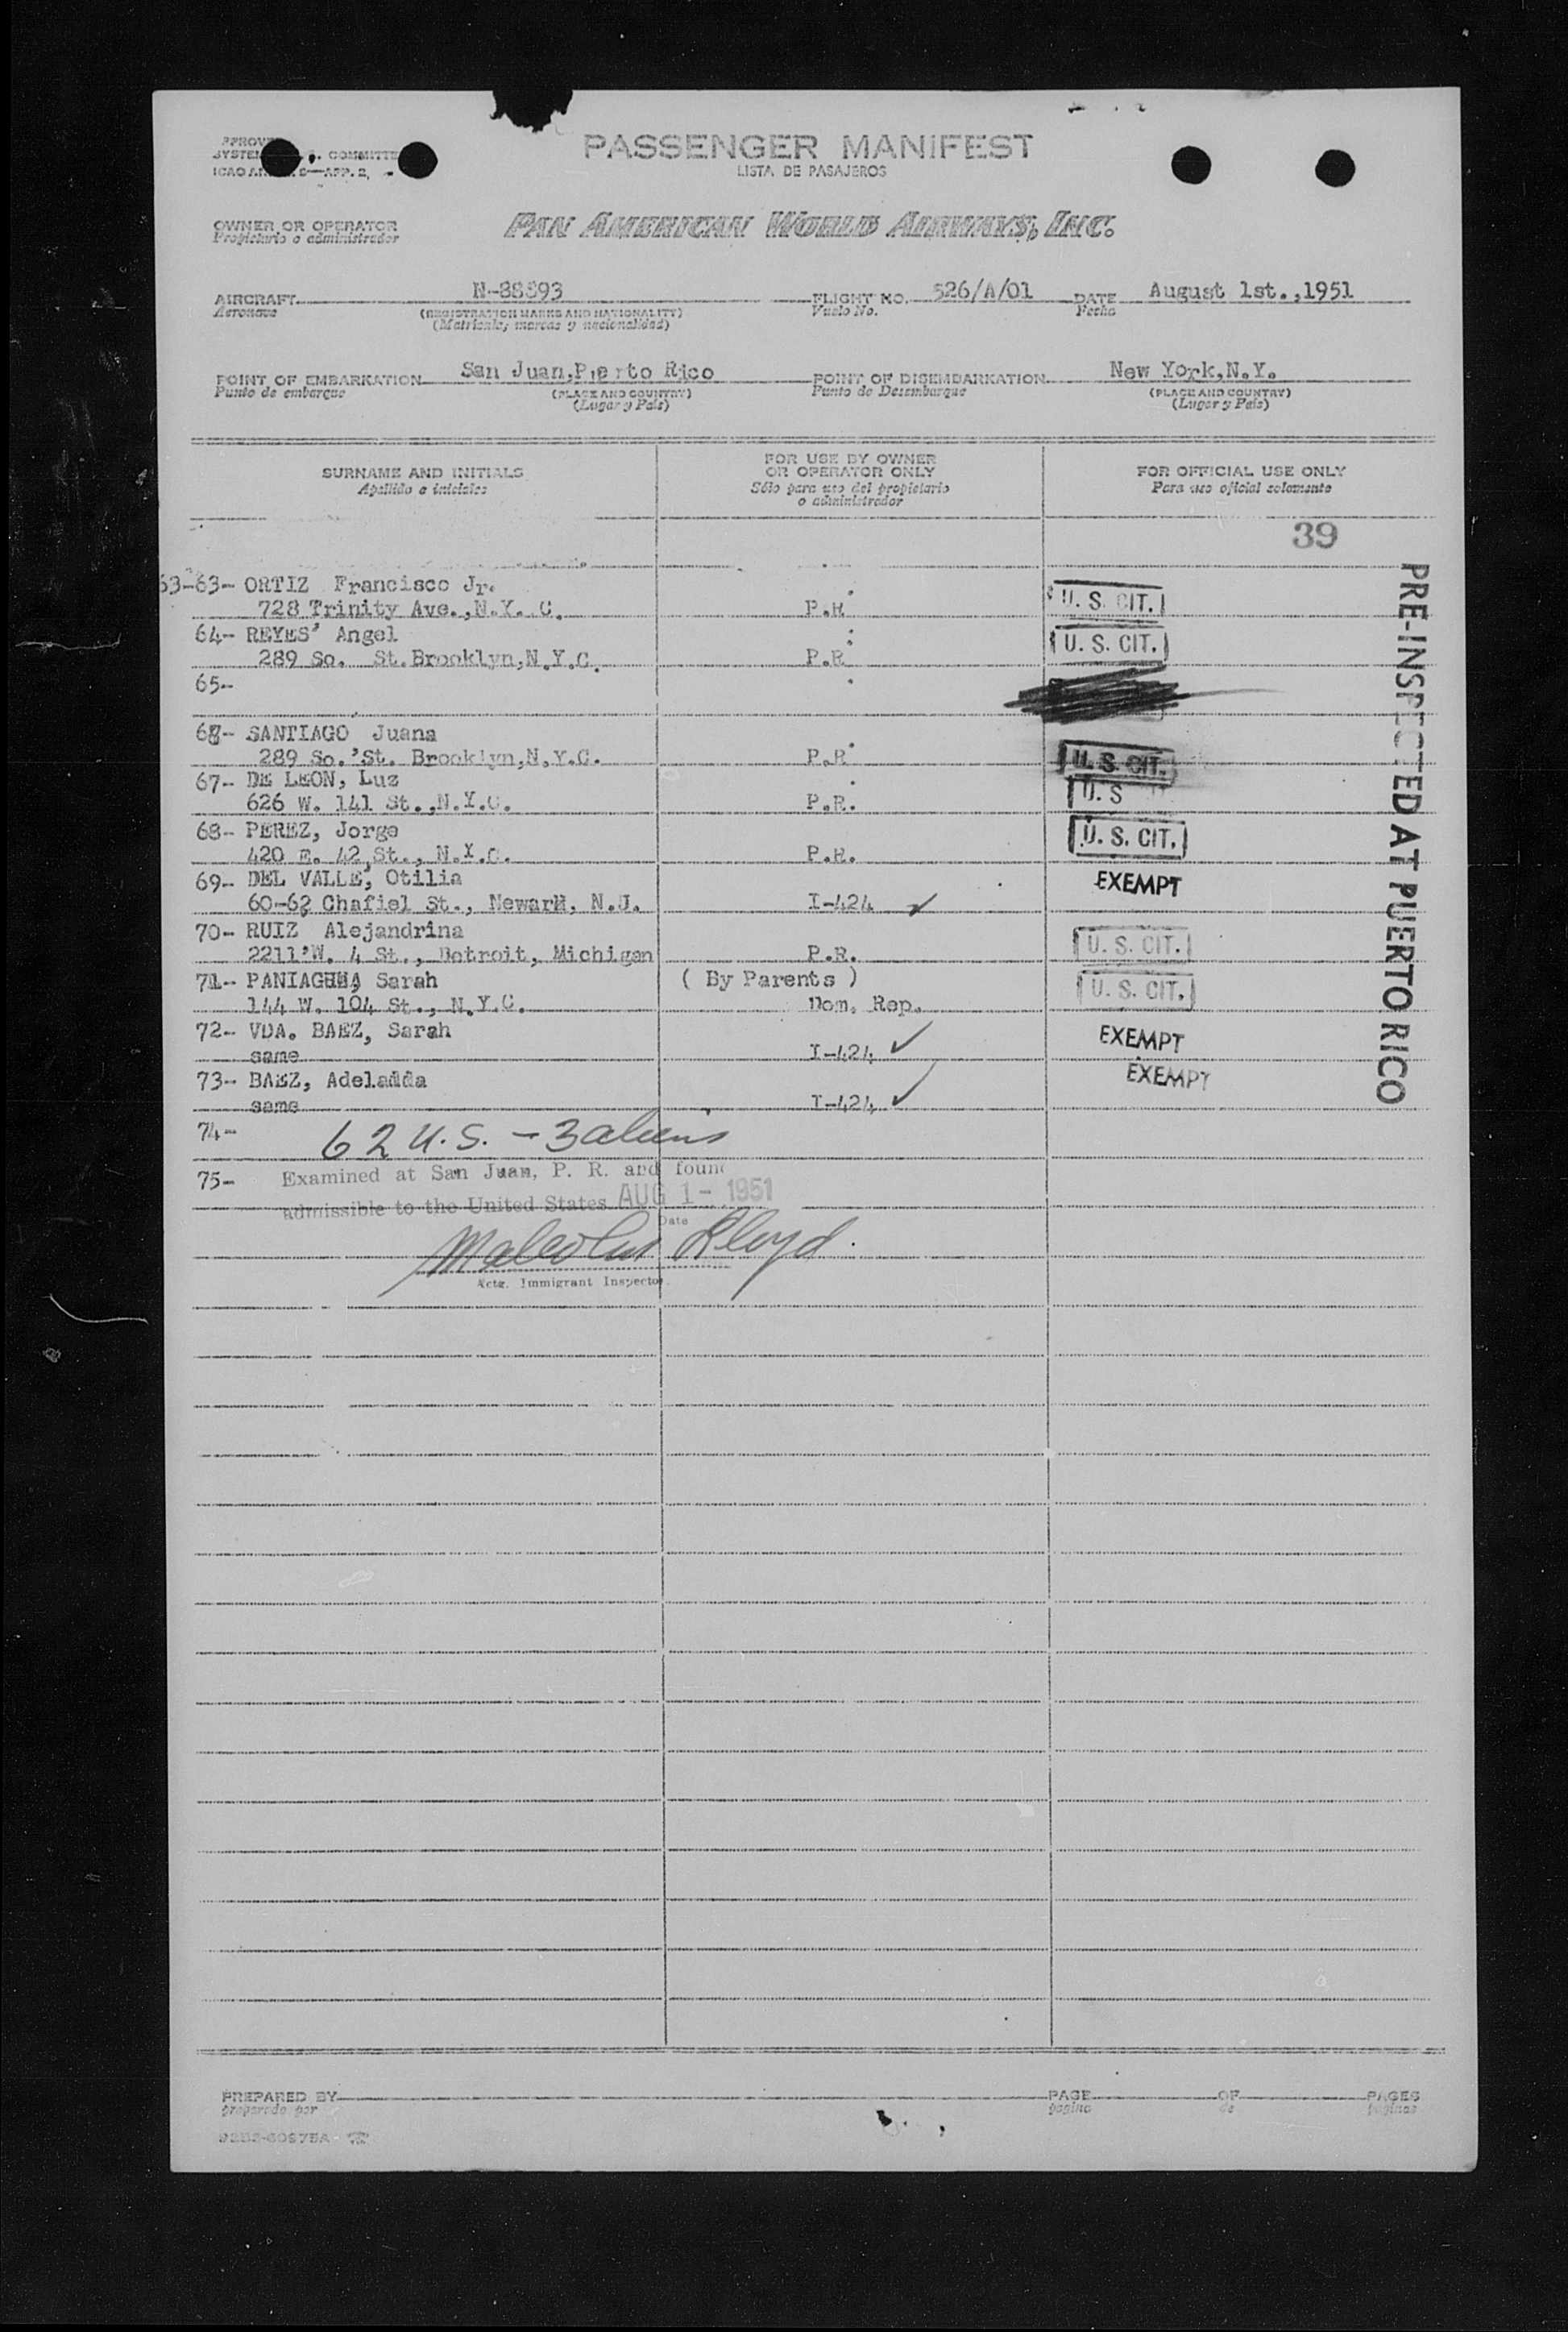 PASSENGER MANIFEST
LISTA DE PASAJEROS
OWNER OR OPERATOR
Propietario o administrador
PAN AMERICAN WORLD AIRWAYS, INC.
AIRCRAFT N-88893 FLIGHT NO. 526/A/01 DATE August 1st.,1951
Aeronave (REGISTRATION MARKS AND NATIONALITY) Vuelo No. Fecha
(Matricula, marcas y nacionalidad)
POINT OF EMBARKATION San Juan,Puerto Rico POINT OF DISEMBARKATION New York,N.Y.
Punto de embarque (PLACE AND COUNTRY) Punto de Desembarque (PLACE AND COUNTRY)
(Lugar y País) (Lugar y País)
SURNAME AND INITIALS
Apellido e iniciales
FOR USE BY OWNER
OR OPERATOR ONLY
Sólo para uso del propietario
o administrador
FOR OFFICIAL USE ONLY
Para uso oficial solamente
39
63-63- ORTIZ Francisco Jr.
728 Trinity Ave.,N.Y. C. P.R U. S. CIT.
64- REYES' Angel
289 So. St.Brooklyn,N.Y.C. P.R U. S. CIT.
65-
SANTIAGO Juana
289 So.'St. Brooklyn,N.Y.C. P.R U. S. CIT.
67- DE LEON, Luz
626 W. 141 St.,N.Y.C. P.R. U. S
68- PEREZ, Jorge
420 E. 42 St., N.Y.C. P.R. U. S. CIT.
69- DEL VALLE, Otilia EXEMPT
60-62 Chafiel St., Newark, N.J. I-424 ✓
70- RUIZ Alejandrina
2211'W. 4 St., Detroit, Michigan P.R. U. S. CIT.
71- PANIAGUA, Sarah ( By Parents ) U. S. CIT.
144 W. 104 St., N.Y.C. Dom. Rep.
72- VDA. BAEZ, Sarah EXEMPT
same I-424 ✓
73- BAEZ, Adelaida EXEMPT
same I-424 ✓
74- 62 U.S. - 3 aliens
75- Examined at San Juan, P. R. and found
admissible to the United States AUG 1- 1951
Date
Malcolm Lloyd.
Actg. Immigrant Inspector.
PRE-INSPECTED AT PUERTO RICO
PREPARED BY PAGE OF PAGES
preparado por pagina de paginas